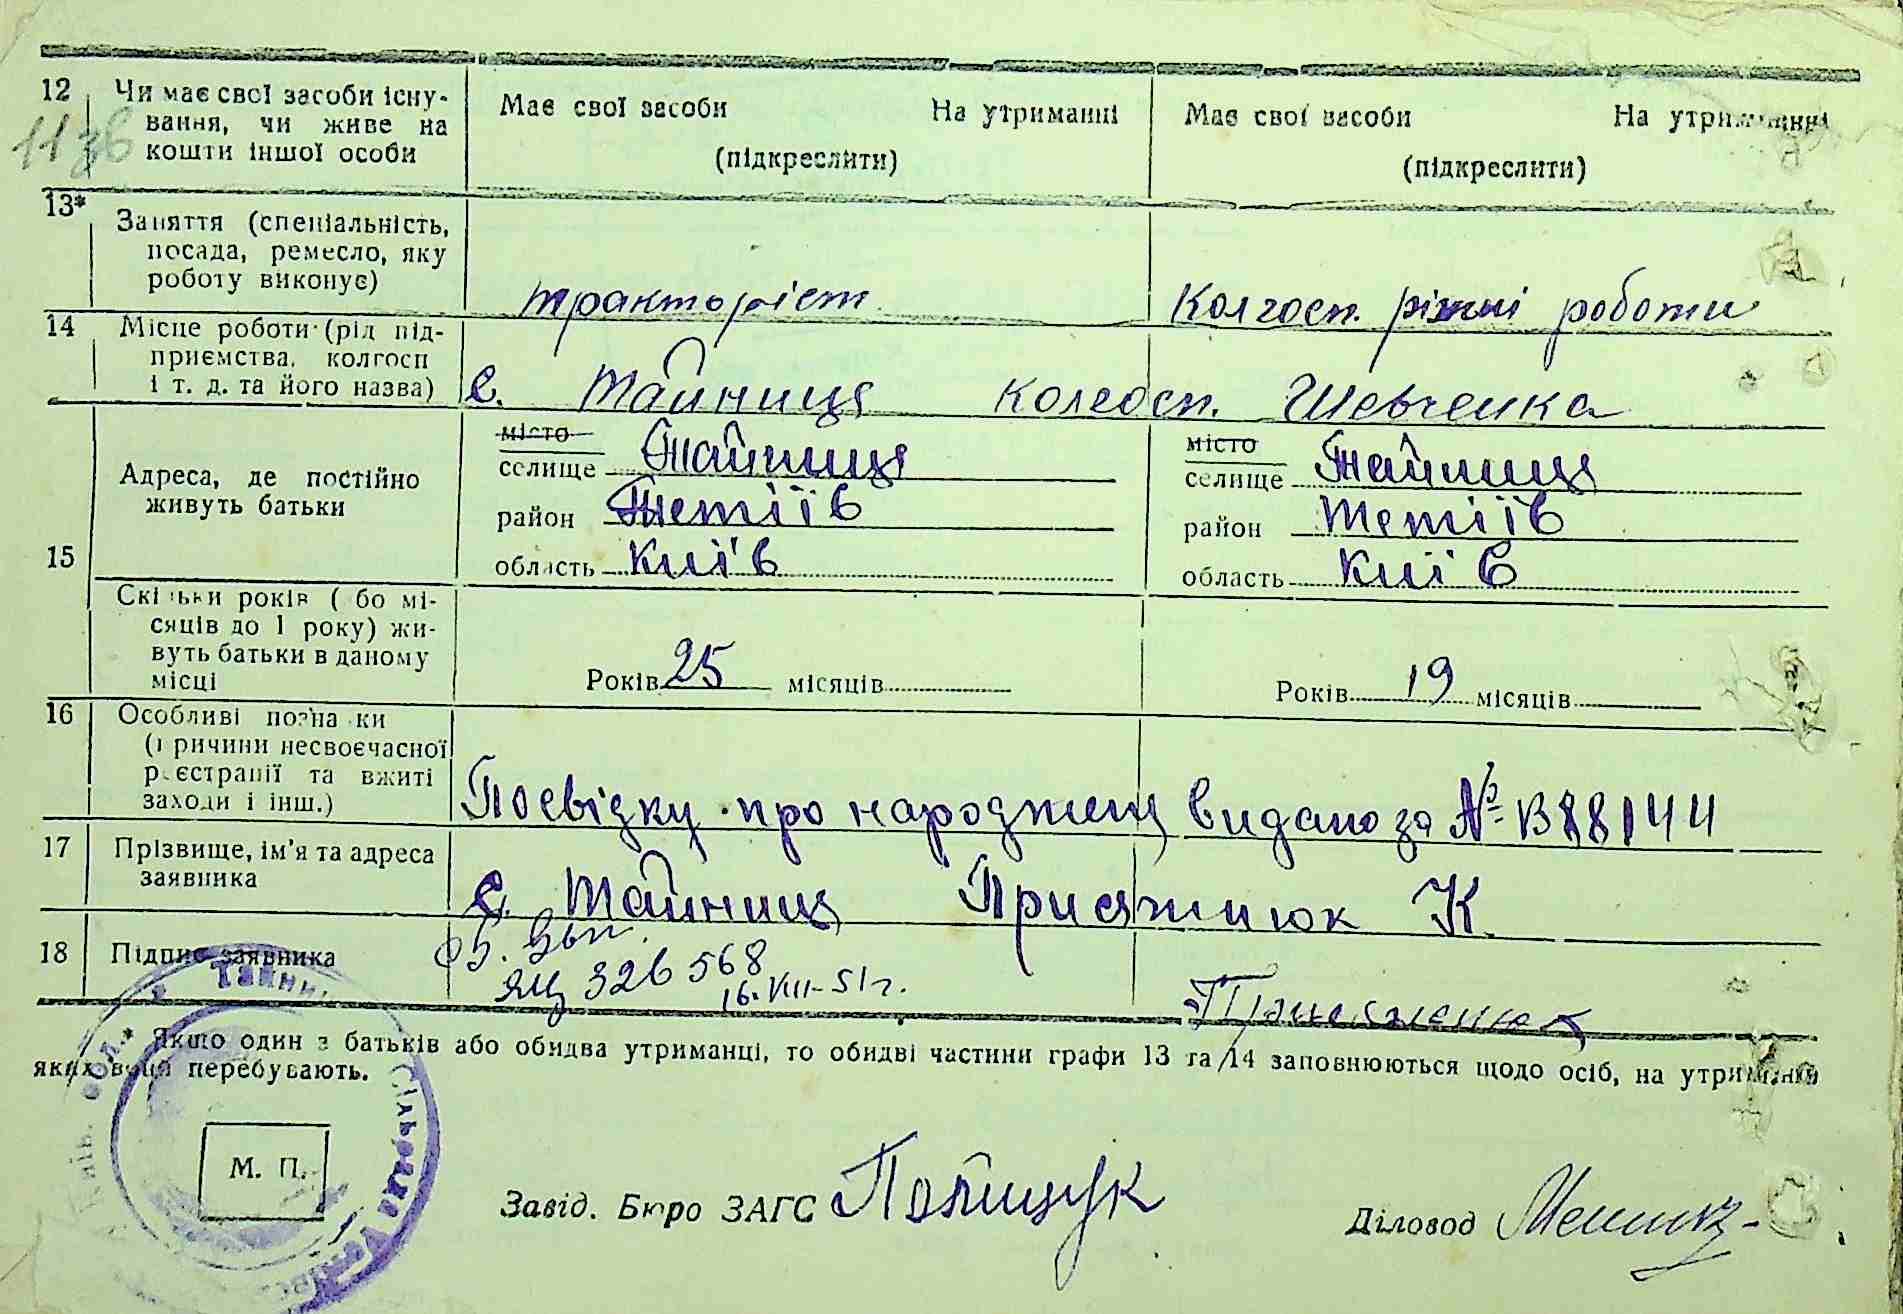 12
11зв
Чи має свої засоби існу-
вання, чи живе на
кошти іншої особи
Має свої засоби На утриманні
(підкреслити)
Має свої засоби На утриманні
(підкреслити)
13*
Заняття (спеціальність,
посада, ремесло, яку
роботу виконує)
тракторіст
Колгосп. ріжні роботи
14
Місце роботи (рід під-
приємства, колгосп
і т. д. та його назва)
с. Тайниця колгосп. Шевченка
15
Адреса, де постійно
живуть батьки
місто
селище Тайниця
район Тетіїв
область Київ
місто
селище Тайниця
район Тетіїв
область Київ
Скільки років ( бо мі-
сяців до 1 року) жи-
вуть батьки в даному
місці
Років 25 місяців
Років 19 місяців
16
Особливі познаки
(причини несвоєчасної
реєстрації та вжиті
заходи і інш.)
Посвідку про народжен видано за № В88144
17
Прізвище, ім'я та адреса
заявника
с. Тайниця Присяжнюк К.
18
Підпис заявника
яц 326568
16.VIII-51г.
* Якщо один з батьків або обидва утриманці, то обидві частини графи 13 та 14 заповнюються щодо осіб, на утриманні
яких вони перебувають.
М. П.
Завід. Бюро ЗАГС Поліщук
Діловод